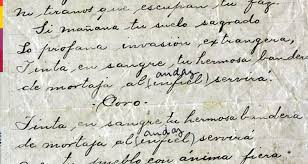 No tiranos que escupan tu faz.
Si mañana tu suelo sagrado
Lo profana invasión extrangera,
Tinta en sangre tu hermosa bandera
andaz
de mortaja al (infiel) servirá.
Coro.
Tinta en sangre tu hermosa bandera
andaz
de mortaja al (infiel) servirá
pueblo con anima fiera